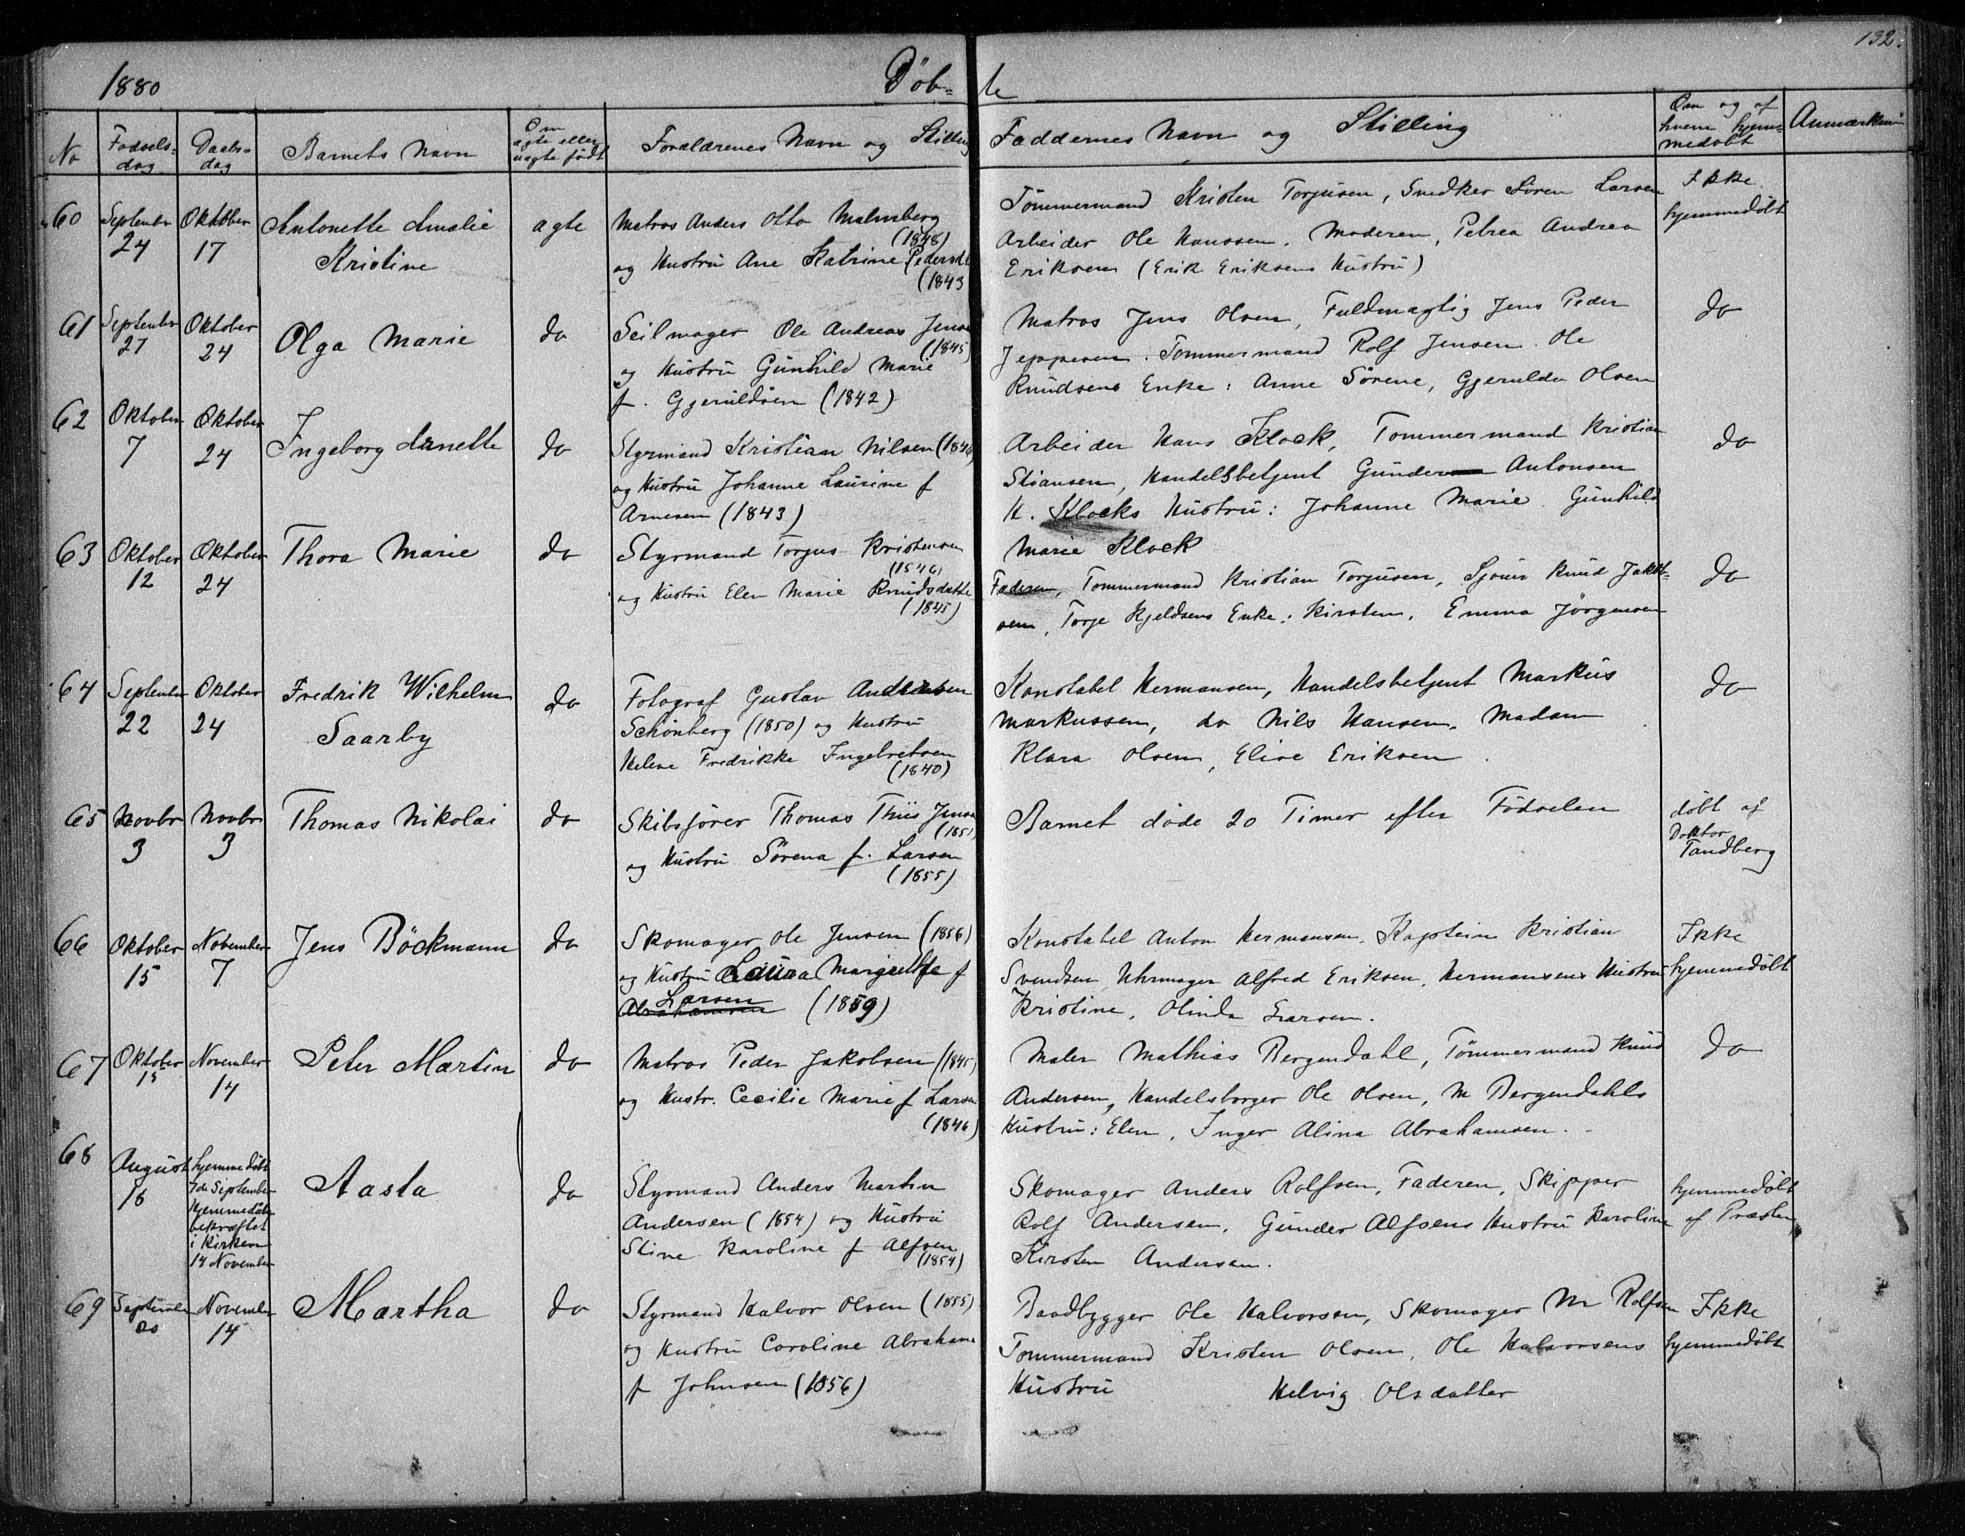 132.
1880 Døb- te
No
Fødsels-
dag
Daabs-
dag
Barnets Navn
Om
ægte eller
uægte født
Forældrenes Navn og Stilling
Faddernes Navn og Stilling
Om og af
hvem hjem-
medøbt
Anmærkn
60
September
24
Oktober
17
Antonette Amalie
Kristine
ægte
Matros Anders Otto Malmberg
(1848)
og Hustru Ane Katrine Pedersdt
(1843
Tømmermand Kristen Torjusen, Snedker Søren Larsen
Arbeider Ole Hanssen. Moderen, Petrea Andrea
Eriksen (Erik Eriksens Hustru)
Ikke
hjemmedøbt
61
September
27
Oktober
24
Olga Marie
do
Seilmager Ole Andreas Jens
(1845)
og Hustru Gunhild Marie
f. Gjeruldsen (1842)
Matros Jens Olsen, Fuldmægtig Jens Peder
Jeppesen. Tømmermand Rolf Jensen. Ole
Knudsens Enke: Anne Sørene, Gjerulda Olsen
do
62
Oktober
7
Oktober
24
Ingeborg Anette
do
Styrmand Kristian Nilsen (1846
og Hustru Johanne Laurine f
Arnesen (1843)
Arbeider Hans Klock, Tømmermand Kristian
Stiansen, Handelsbetjent Gunder Antonsen
H. Klocks Hustru: Johanne Marie. Gunhild
Marie Klock
do
63
Oktober
12
Oktober
24
Thora Marie
do
Styrmand Torjus Kristensen
(1846)
og Hustru Elen Marie Knudsdatte
(1845)
Faderen, Tømmermand Kristian Torjusen, Sjour Knud Jakob-
sen, Torje Kjeldsens Enke: Kirsten. Emma Jørgensen
do
64
September
22
Oktober
24
Fredrik Wilhelm
Saarby
do
Fotograf Gustav Andersen
Schønberg (1850) og Hustru
Helene Fredrikke Ingebretsen
(1840)
Konstabel Hermansen, Handelsbetjent Markus
Markussen, do Nils Hansen. Madam
Klara Olsen, Elise Eriksen
do
65
Novbr
3
Novbr
3
Thomas Nikolai
do
Skibsfører Thomas Thiis Jens
(1851
og Hustru Sørena f. Larsen
(1855)
Barnet døde 20 Timer efter Fødselen
døbt af
Doktor
Tandberg
66
Oktober
15
November
7
Jens Böckmann
do
Skomager Ole Jensen (1856)
og Hustru Laura Margrethe f
Larsen
Abrahamsen (1859)
Konstabel Anton Hermansen. Kaptein Kristian
Svendsen, Uhrmager Alfred Eriksen, Hermansens Hustru
Kristine, Olinda Larsen.
Ikke
hjemmedøbt
67
Oktober
15
November
14
Peter Martin
do
Matros Peder Jakobsen (1845)
og Hustr. Cecilie Marie f Larse
(1846)
Maler Mathias Bergendahl, Tømmermand Knud
Andersen, Handelsborger Ole Olsen, M Bergendahls
Hustru: Elen, Inger Alina Abrahamsen.
do
68
August
16
hjemmedøbt
7de September
Hjemmedåb
bekræftet
i Kirken
14 November
Aasta
do
Styrmand Anders Martin
Andersen (1854) og Hustru
Stine Karoline f Alfsen
(1854)
Skomager Anders Rolfsen, Faderen, Skipper
Rolf Andersen, Gunder Alfsens Hustru Karoline
Kirsten Andersen.
hjemmedøbt
af Præsten
69
September
20
November
14
Martha
do
Styrmand Halvor Olsen (1855)
og Hustru Caroline Abraham
f Johnsen (1856)
Baadbygger Ole Halvorsen, Skomager M Rolfsen
Tømmermand Kristen Olsen, Ole Halvorsens
Hustru Helvig Olsdatter
Ikke
hjemmedøbt